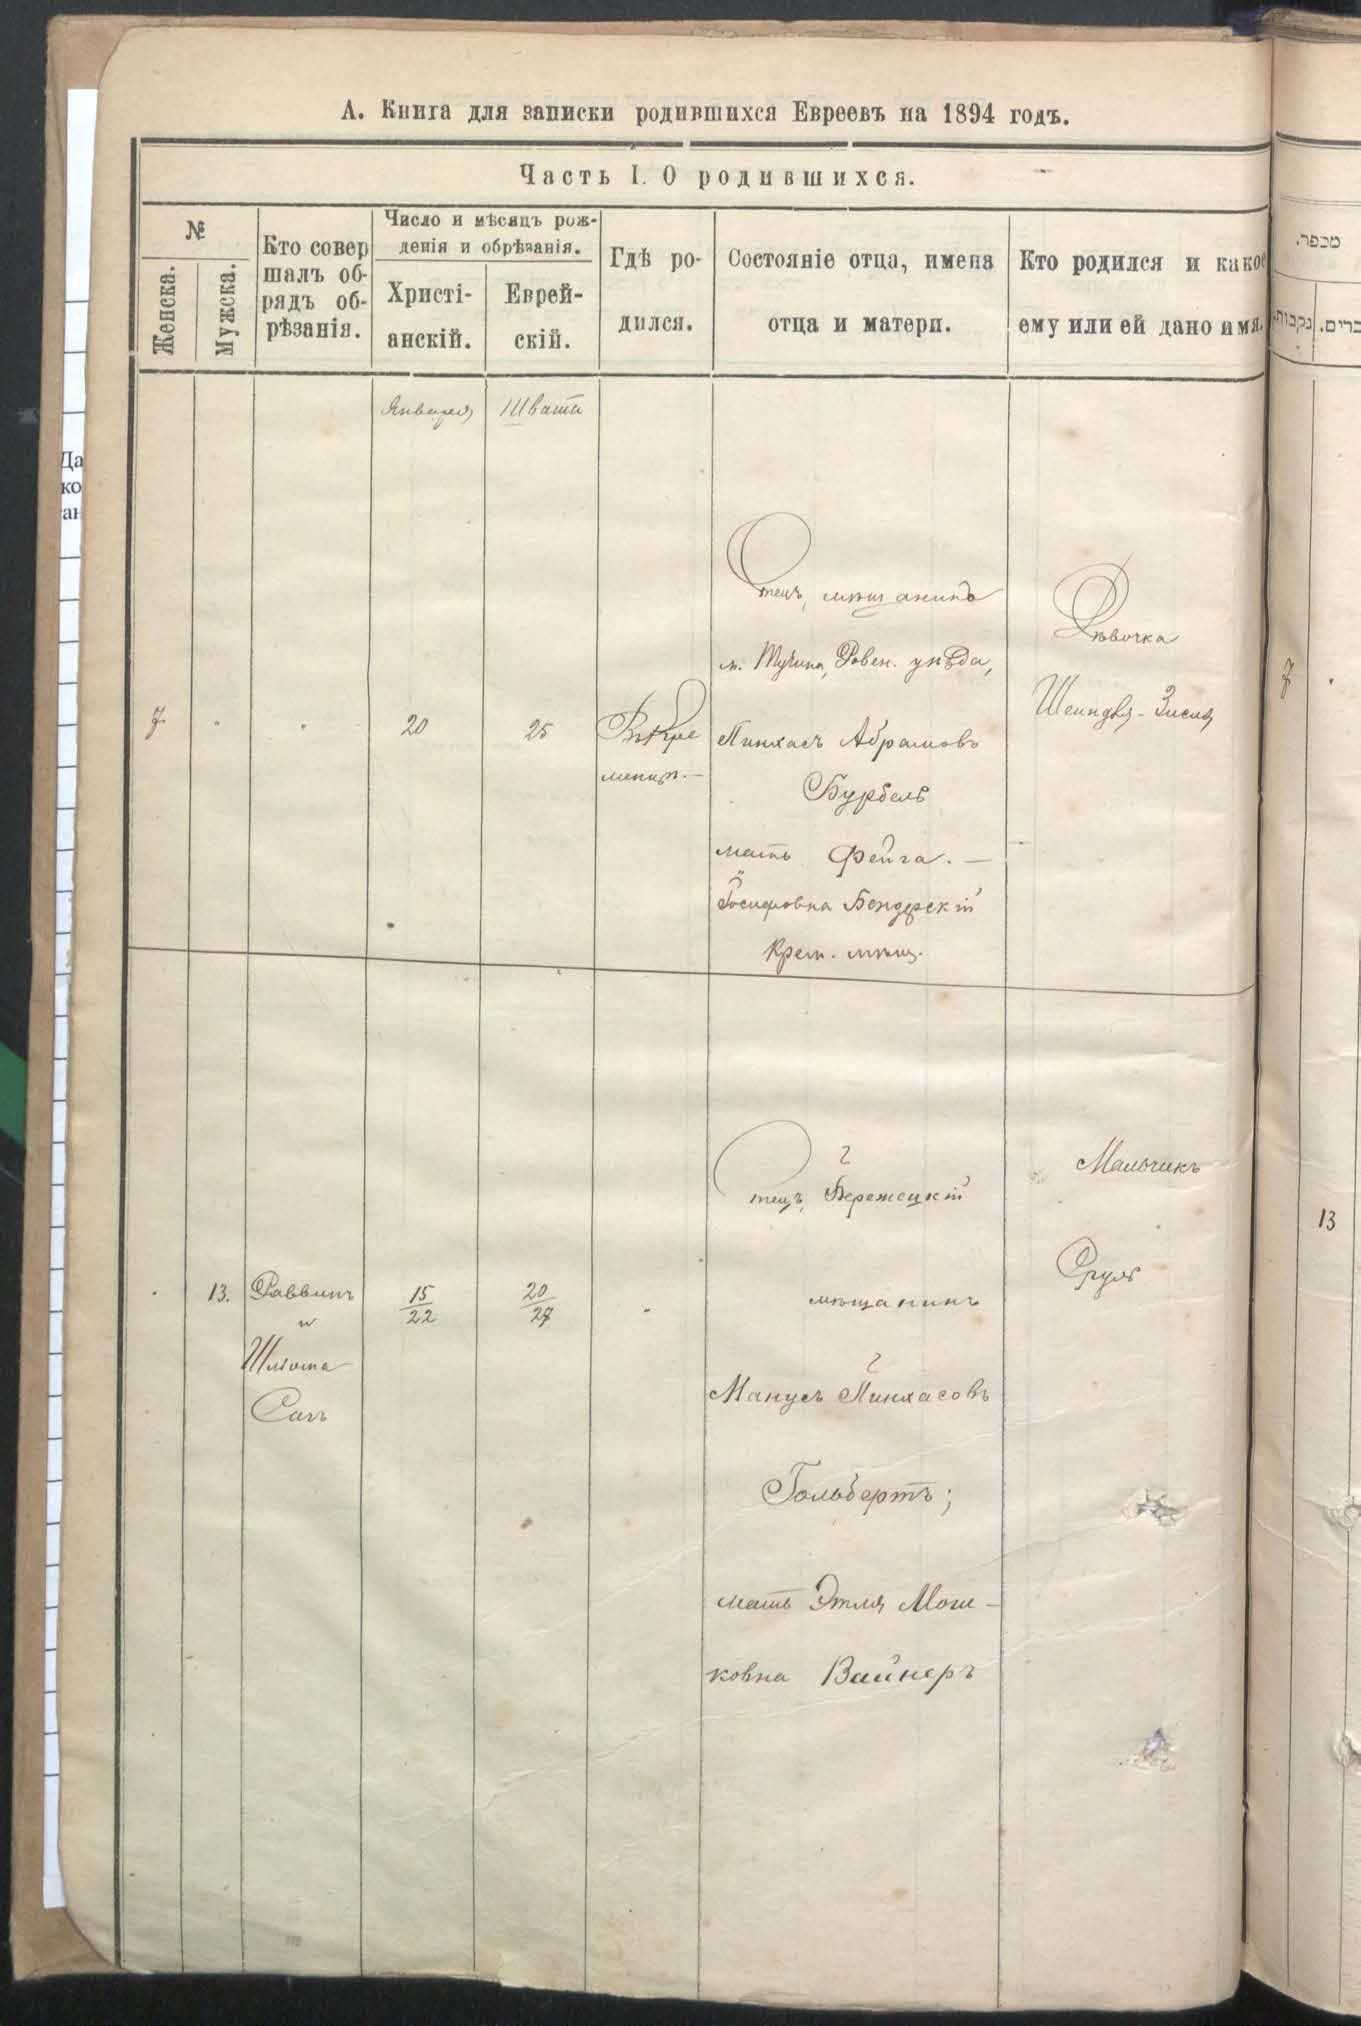 А. Книга для записки родившихся Евреевъ на 1894 годъ.
Часть I. О родившихся.
№
Женска.
Мужска.
Кто совер
шалъ об-
рядъ об-
рѣзанія.
Число и мѣсяцъ рож-
денія и обрѣзанія.
Христі-
анскій.
Еврей-
скій.
Гдѣ ро-
дился.
Состояніе отца, имена
отца и матери.
Кто родился и какое
ему или ей дано имя.
Января
Швата
7
20
25
Въ Кре
менцѣ.
Отецъ, мѣщанинъ
м. Тучина, Ровен. уѣзда,
Пинхасъ Абрамовъ
Бурбель
мать Фейга. —
Іосифовна Бендерскій
Крем. мѣщ.
Дѣвочка
Шейндля-Зисля
13.
Раввинъ
и
Шліома
Сатъ
15
22
20
27
Отецъ, Бережецкій
мѣщанинъ
Манусъ Пинхасовъ
Гольбертъ;
мать Этля Мош-
ковна Вайнеръ
Мальчикъ
Сруль
מספר.
נקבות.
ברים.
7
13
Да
ко
ан